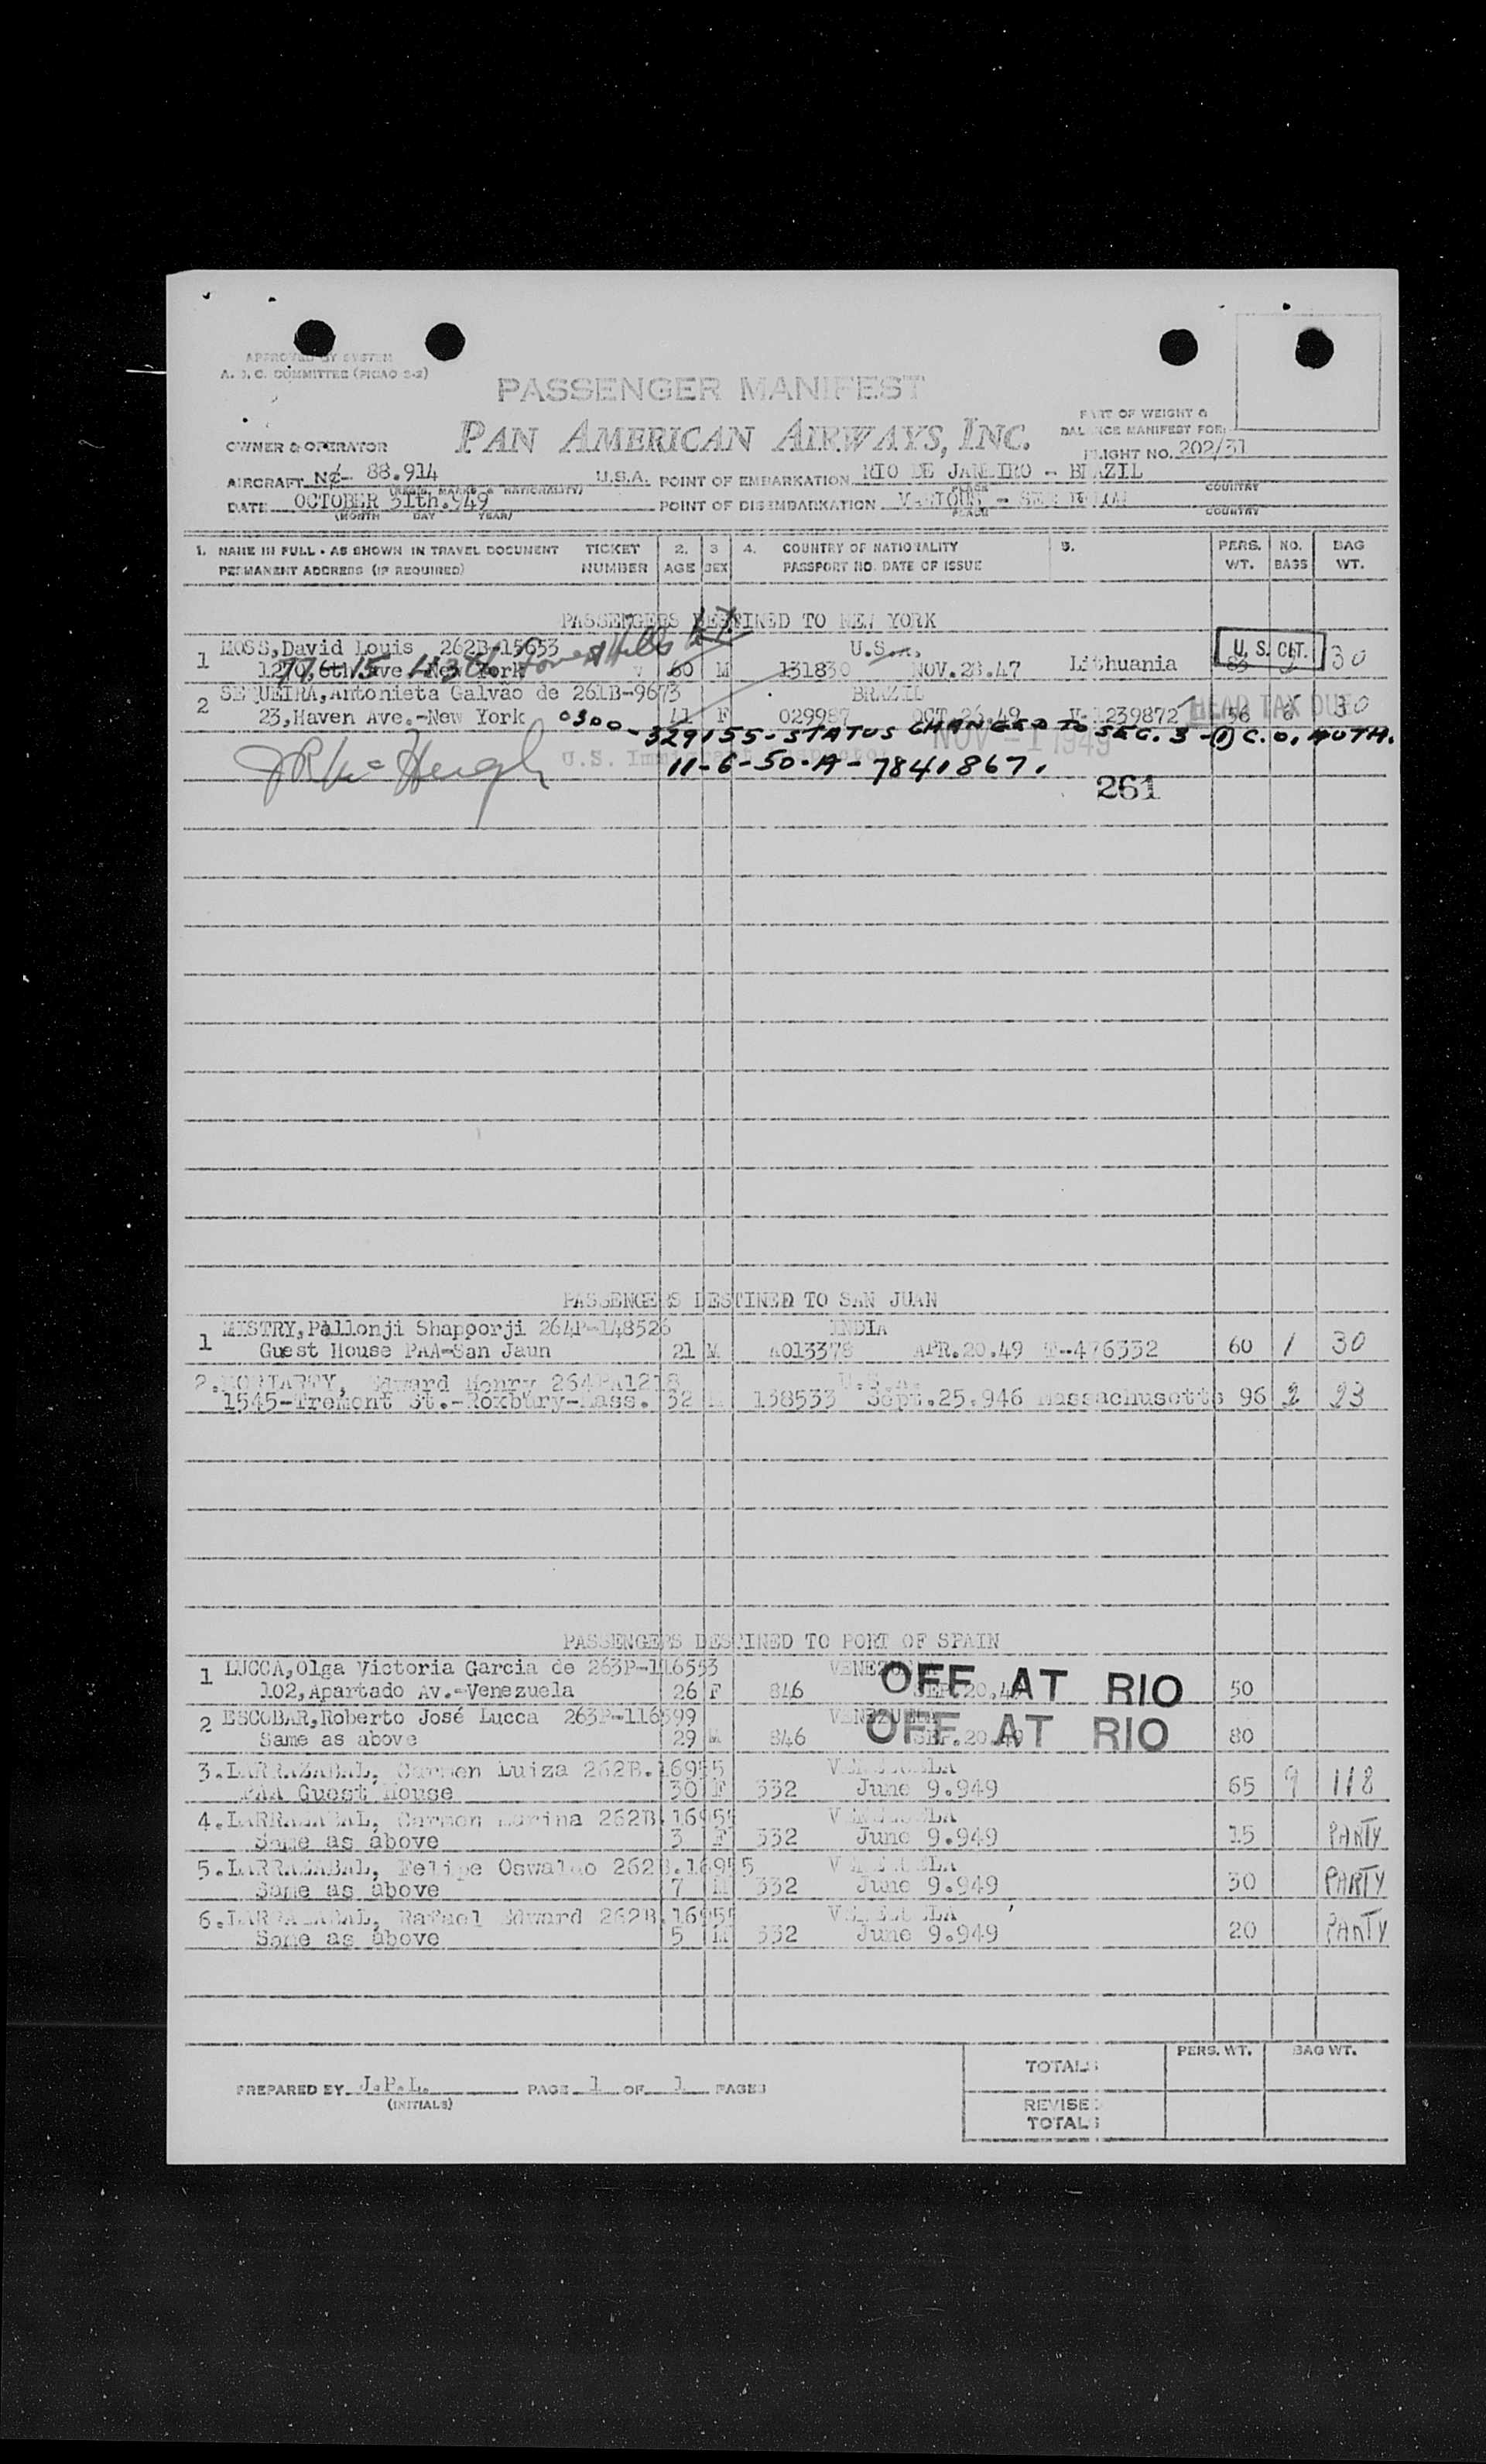 APPROVED BY SYSTEM
A. O. C. COMMITTEE (PICAO S-2)
PASSENGER MANIFEST
PART OF WEIGHT &
BALANCE MANIFEST FOR:
OWNER & OPERATOR PAN AMERICAN AIRWAYS, INC.
FLIGHT NO. 202/31
AIRCRAFT NC- 88.914 U.S.A. POINT OF EMBARKATION RIO DE JANEIRO - BRAZIL
(REGIS. MARKS & NATIONALITY) PLACE COUNTRY
DATE OCTOBER 31th.949 POINT OF DISEMBARKATION VARIOUS - SEE BELOW
(MONTH DAY YEAR) PLACE COUNTRY
1. NAME IN FULL - AS SHOWN IN TRAVEL DOCUMENT TICKET 2. 3 4. COUNTRY OF NATIONALITY 5. PERS. NO. BAG
PERMANENT ADDRESS (IF REQUIRED) NUMBER AGE SEX PASSPORT NO. DATE OF ISSUE WT. BAGS WT.
PASSENGERS DESTINED TO NEW YORK
1 MOSS,David Louis 262B-15653 U.S.A. U. S. CIT.
1270,6th Ave New York 60 M 131830 NOV.28.47 Lithuania 30
Forest Hills
2 SEQUEIRA,Antonieta Galvão de 261B-9673 BRAZIL HEAD TAX DUE
23,Haven Ave.-New York 41 F 029987 OCT.26.49 V-1239872 56 30
0300-329155-STATUS CHANGED TO SEC. 3-(1) C.O. AUTH.
NOV -1 1949
U.S. Immigrant Inspector
11-6-50-A-7841867.
261
PASSENGERS DESTINED TO SAN JUAN
1 MISTRY,Pallonji Shapporji 264P-148526 INDIA
Guest House PAA-San Jaun 21 M A013378 APR.20.49 T-476332 60 1 30
2.MORIARTY, Edward Henry 264PA1218 U.S.A.
1545-Tremont St.-Roxbury-Mass. 32 M 138533 Sept.25.946 Massachusetts 96 2 23
PASSENGERS DESTINED TO PORT OF SPAIN
1 LUCCA,Olga Victoria Garcia de 263P-116553 VENEZUELA
102,Apartado Av.-Venezuela 26 F 846 SEP.20.49 OFF AT RIO 50
2 ESCOBAR,Roberto José Lucca 263P-116599 VENEZUELA
Same as above 29 M 846 SEP.20.49 OFF AT RIO 80
3.LARRAZABAL, Carmen Luiza 262B.16955 VENEZUELA
PAA Guest House 30 F 332 June 9.949 65 9 118
4.LARRAZABAL, Carmen Marina 262B.16955 VENEZUELA
Same as above 3 F 332 June 9.949 15 PARTY
5.LARRAZABAL, Felipe Oswaldo 262B.16955 VENEZUELA
Same as above 7 M 332 June 9.949 30 PARTY
6.LARRAZABAL, Rafael Edward 262B.16955 VENEZUELA
Same as above 5 M 332 June 9.949 20 PARTY
PERS. WT. BAG WT.
TOTALS
PREPARED BY J.P.L. PAGE 1 OF 1 PAGES
(INITIALS)
REVISED
TOTALS